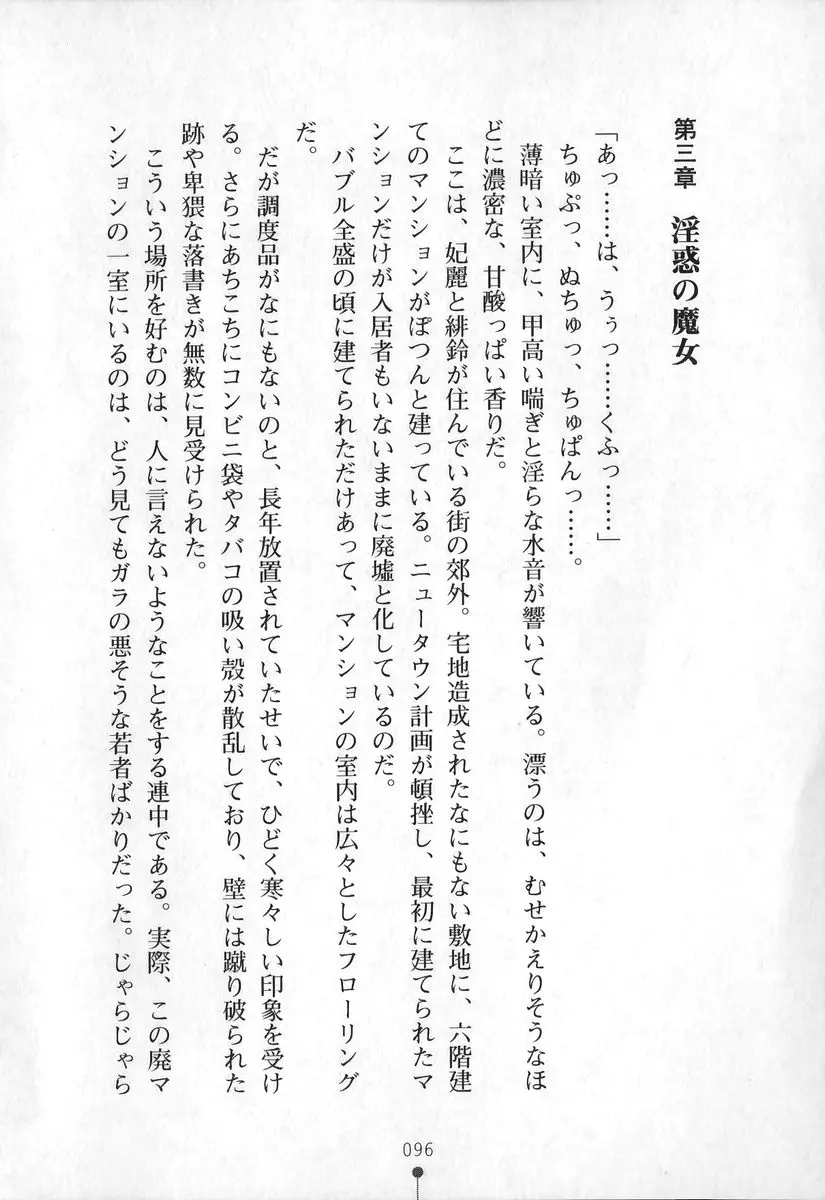 第三章　淫惑の魔女
「あっ……は、うぅっ……くふっ……」
ちゅぷっ、ぬちゅっ、ちゅぱんっ……。
薄暗い室内に、甲高い喘ぎと淫らな水音が響いている。漂うのは、むせかえりそうなほ
どに濃密な、甘酸っぱい香りだ。
ここは、妃麗と緋鈴が住んでいる街の郊外。宅地造成されたなにもない敷地に、六階建
てのマンションがぽつんと建っている。ニュータウン計画が頓挫し、最初に建てられたマ
ンションだけが入居者もいないままに廃墟と化しているのだ。
バブル全盛の頃に建てられただけあって、マンションの室内は広々としたフローリング
だ。
だが調度品がなにもないのと、長年放置されていたせいで、ひどく寒々しい印象を受け
る。さらにあちこちにコンビニ袋やタバコの吸い殻が散乱しており、壁には蹴り破られた
跡や卑猥な落書きが無数に見受けられた。
こういう場所を好むのは、人に言えないようなことをする連中である。実際、この廃マ
ンションの一室にいるのは、どう見てもガラの悪そうな若者ばかりだった。じゃらじゃら
096